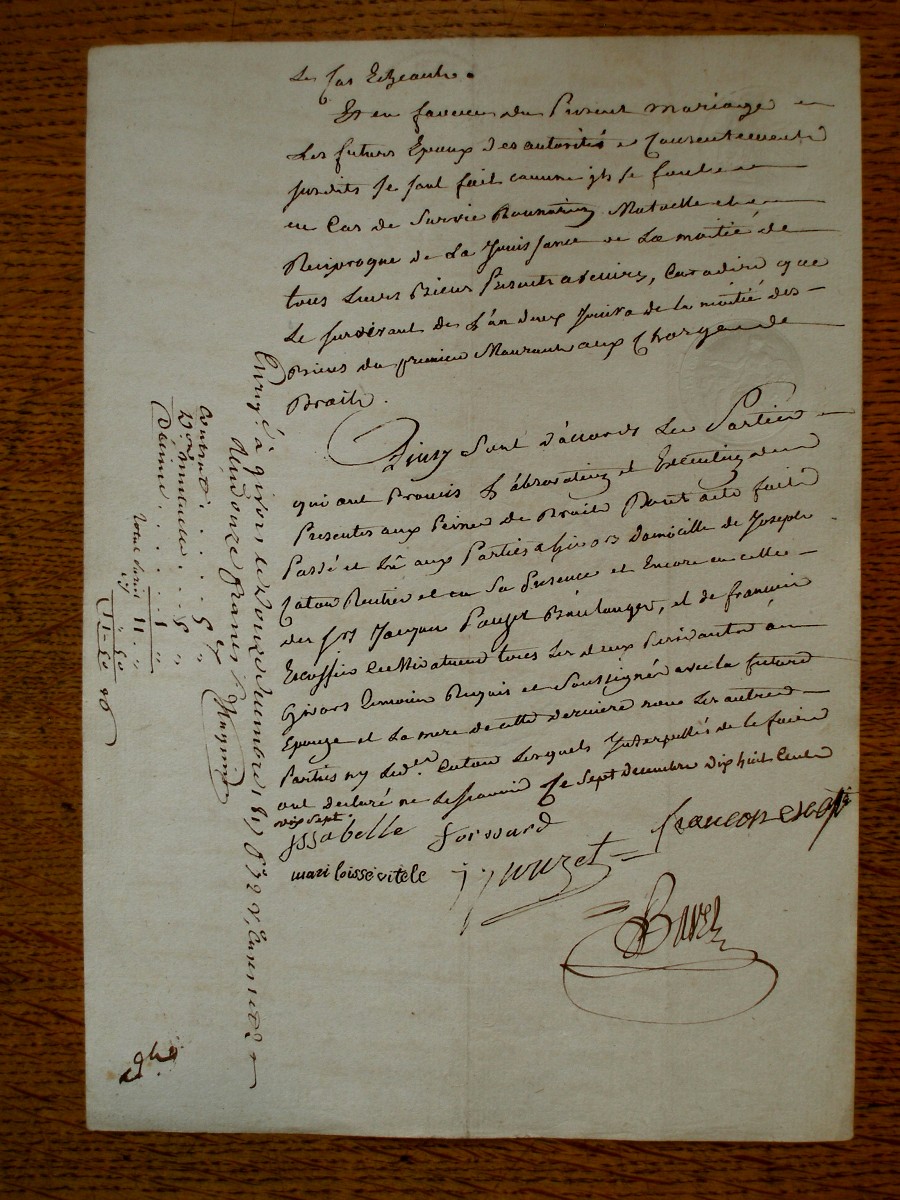 Le Cas Echeant.
Et en faveur du Present mariage
Les futurs Epoux des autorités et Consentement
susdits se sont fait comme ils se font
en Cas de Survie Donnation Mutuelle et
Reciproque de La Jouissance de La moitié de
tous Leurs Biens Presents a venirs, Cest adire que
Le survivant des d'eux Jouira de la moitié des
Biens du premier Mourant aux Charges de
Droit.
Ainsy Sont D'accords Les Parties
qui ont Promis L'observation et Execution des
Presentes aux Peines de Droit Dont acte fait
Passé et Lû aux Parties a Givors Domicille de Joseph
Caton Rentier et en Sa Presence et Encore en celle
des srs Jacques Pouzet Boulanger, et de francois
Escoffier Cultivateur tous Les deux Residants a
Givors temoins Requis et Soussignés avec la future
Epouze et La mere de cette derniere non Les autres
Parties ny Led. Caton Lesquels Interpellés de le faire
ont declaré ne Le Savoir Ce Sept Decembre Dix huit Cents
dix sept
issabelle forssard francois escofi
mari loisse vitele j pouzet
Enregé à givors le douze décembre 1817 fo 72 Vo, Cases 1 et 2
Reçu onze francs
Contrat . . . 5 "
Don mutuel . . 5 "
Décime . . . 1 "
11 "